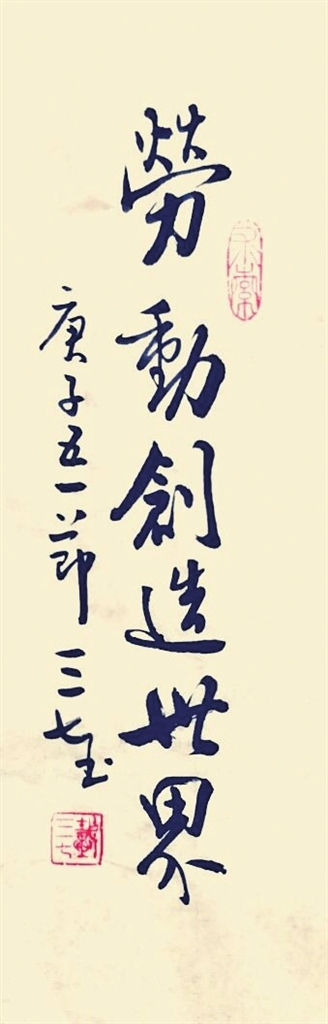 勞動創造世界
庚子五一節 三七玉